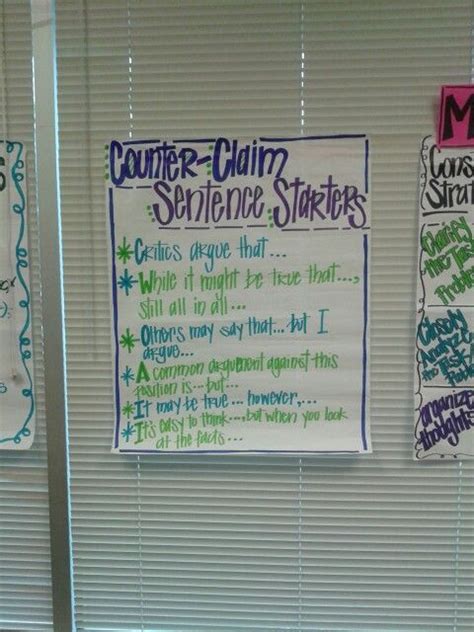 Counter-Claim
Sentence Starters
Critics argue that...
While it might be true that...,
still all in all...
Others may say that...but I
argue...
A common arguement against this
position is...but...
It may be true... however,...
It's easy to think...,but when you look
at the facts...
M
Cons
Strat
Clarify
the Tas
Proble
Closely
Analyz
Organize
thoughts